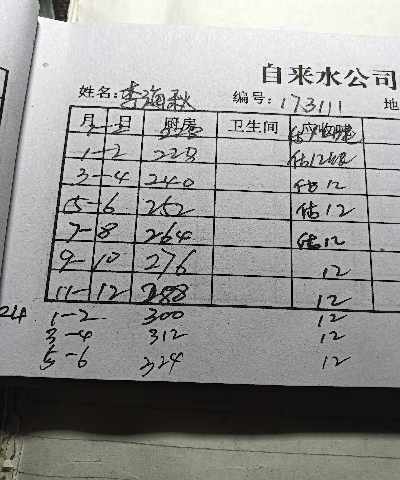 自来水公司
姓名:李海秋 编号:173111 地
月 日 厨房 卫生间 应收
1-2 228 估12
3-4 240 估12
5-6 252 估12
7-8 264 估12
9-10 276 12
11-12 288 12
24 1-2 300 12
3-4 312 12
5-6 324 12